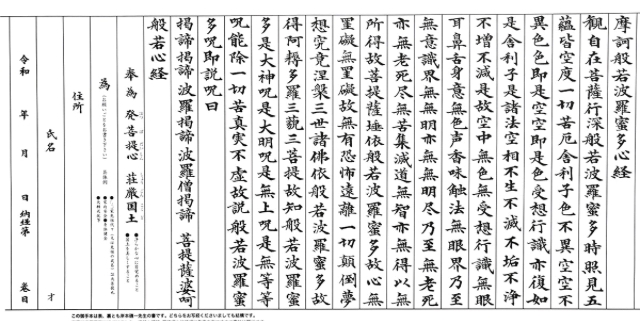 摩訶般若波羅蜜多心経
観自在菩薩行深般若波羅蜜多時照見五
蘊皆空度一切苦厄舎利子色不異空空不
異色色即是空空即是色受想行識亦復如
是舎利子是諸法空相不生不滅不垢不浄
不増不減是故空中無色無受想行識無眼
耳鼻舌身意無色声香味触法無眼界乃至
無意識界無無明亦無無明尽乃至無老死
亦無老死尽無苦集滅道無智亦無得以無
所得故菩提薩埵依般若波羅蜜多故心無
罣礙無罣礙故無有恐怖遠離一切顛倒夢
想究竟涅槃三世諸佛依般若波羅蜜多故
得阿耨多羅三藐三菩提故知般若波羅蜜
多是大神呪是大明呪是無上呪是無等等
呪能除一切苦真実不虚故説般若波羅蜜
多呪即説呪曰
掲諦掲諦 波羅掲諦 波羅僧掲諦 菩提薩婆呵
般若心経
奉為 発菩提心 荘厳国土
為
住所
氏名 才
令和 年 月 日 納経第 巻目